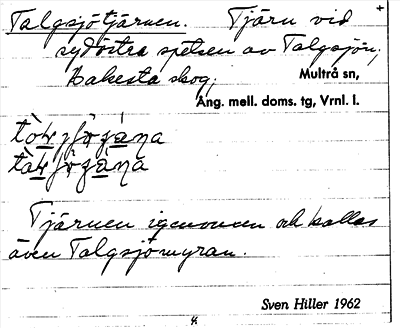 Talgsjötjärnen. Tjärn vid +
sydöstra spetsen av Talgsjön,
Kakesta skog; Multrå sn,
Ång. mell. doms. tg, Vrnl. l.
Tjärnen igenvuxen och kallas
även Talgsjömyran.
Sven Hiller 1962